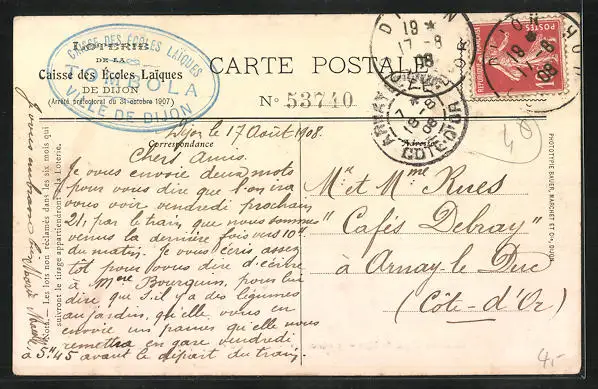 LOTERIE
DE LA
Caisse des Ecoles Laïques
DE DIJON
(Arrêté préfectoral du 31 octobre 1907)
CAISSE DES ÉCOLES LAÏQUES
TOMBOLA
VILLE DE DIJON
CARTE POSTALE
No 53740
DIJON
19 *
17 - 8
08
COTE-D'OR
DIJON
19 *
17 - 8
08
REPUBLIQUE FRANÇAISE
10
ARNAY
18 - 8
08
COTE D'OR
Correspondance
Adresse
48
Dijon le 17 Août 1908.
Chers Amis.
Je vous envoie deux mots
pour vous dire que l'on ira
vous voir vendredi prochain
21, par le train que nous sommes
venus la dernière fois vers 10h
du matin. Je vous écris assez
tôt pour vous dire d'écrire
à Mme Bourguin, pour lui
dire, que s'il y a des légumes
au jardin, qu'elle vous en
envoie un panier qu'elle nous
remettra en gare vendredi
à 5h 45 avant le départ du train.
Mr et Mme Rues
"Cafés Debray"
à Arnay-le-Duc
(Côte-d'Or)
Nota. — Les lots non réclamés dans les six mois qui
suivront le tirage appartiendront à la Loterie.
PHOTOTYPIE BAUER, MARCHET ET Cie, DIJON
4.-